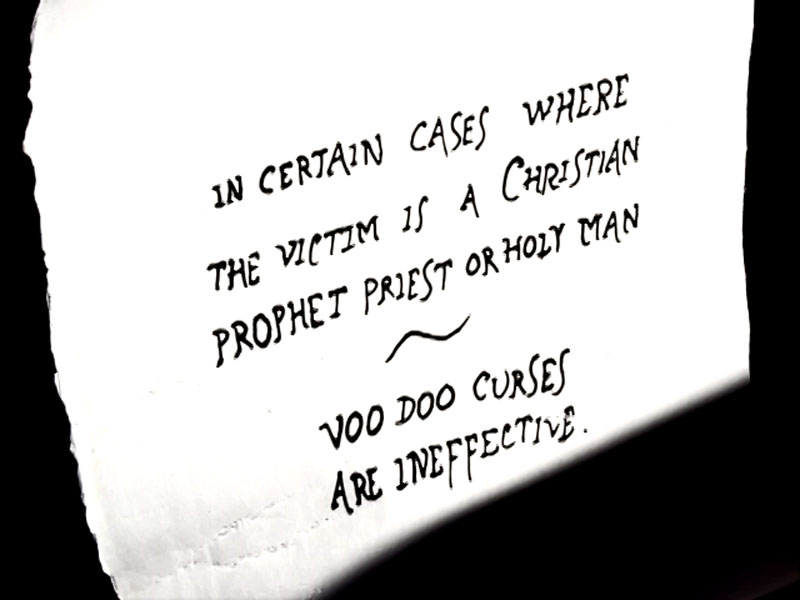 IN CERTAIN CASES WHERE
THE VICTIM IS A CHRISTIAN
PROPHET PRIEST OR HOLY MAN
~
VOO DOO CURSES
ARE INEFFECTIVE.